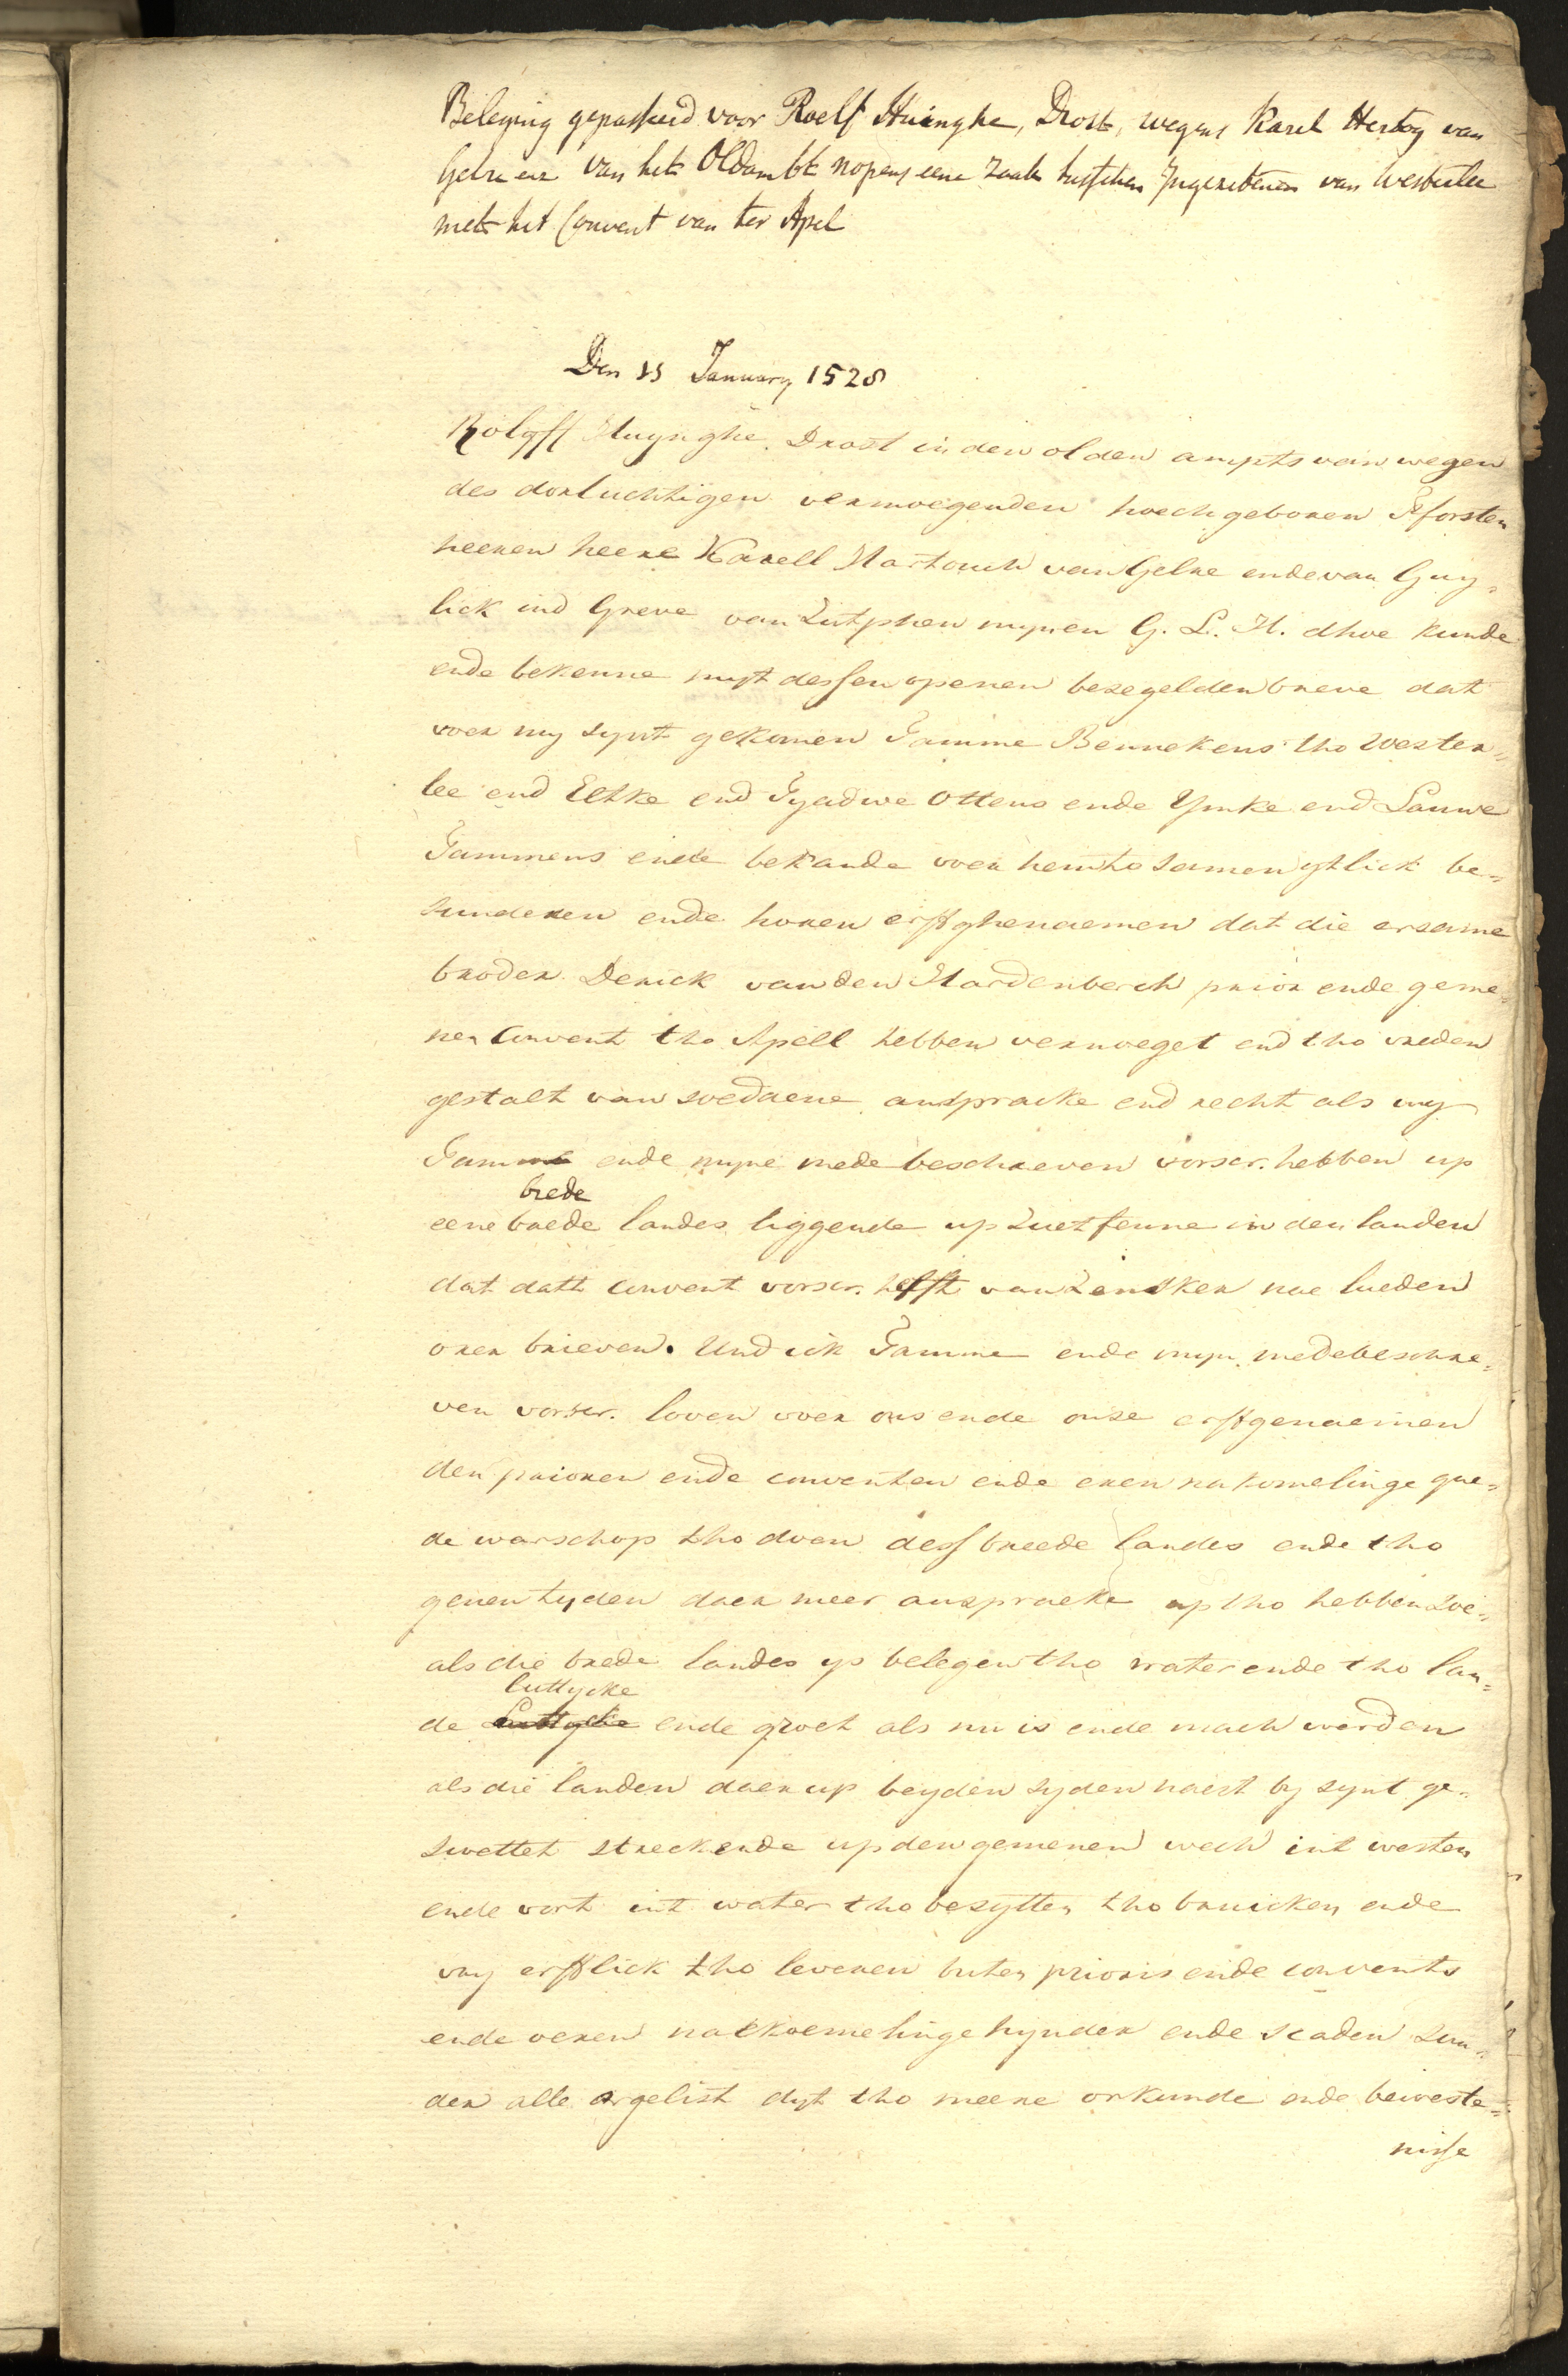 Beleying gepasseerd voor Roelf Huinghe, Drost, wegens Karel Hertog van
Gelre enz van het Oldambt nopens eene zaak tusschen Ingezetenen van Westerlee
met het Convent van ter Apel
Den 15 January 1528
Rolyff Huynghe. Drost in den olden ampts van wegen
des dorluchtigen vermoegenden hoechgeboren Fforsten
heeren heere Karell Hartouch van Gelre ende van Guy=
lick ind Greve van Zutphen mynen G. L. H. dhoe kunde
ende bekenne myt dessen openen bezegelden breve dat
voer my synt gekomen Tamme Bennekens tho Wester=
lee end Eltke end Tyadwe Ottens ende Ymke end Lauwe
Tammens ende bekande voer hem tho samen ytlick be=
sunderen ende horen erffghenaemen dat die ersame
broder Derick van den Hardenberch prior ende geme=
ner Convent tho Apell hebben vernoeget end tho vreden
gestalt van soedaene anspracke end recht als my
Tamme ende myne mede beschreven vorscr. hebben up
brede
eene brede landes liggende up Zuetfenne in den landen
dat datt convent vorscr. hefft van Zensker nae lueden
orer brieven. Und ick Tamme ende myn medebeschre=
ven vorscr. loven voer ons ende onse erffgenaemen
den prioren ende conventen ende eren nakomelinge gue=
de warschop tho doen dess breede landes ende tho
genen tyden daer meer anspraeke up tho hebben zoe=
als die brede landes ys belegen tho water ende tho lan=
luttycke
de Luttycke ende groet als nu is ende mach worden
als die landen daer up beyden syden naest by synt ge=
swettet streckende up den gemenen wech int westen
ende vort int water tho besytten tho bruicken ende
vry erfflick tho leveren buten prioris ende convents
ende oeren nackoemelinge hynder ende scaden sun=
der alle argelist dyt tho meere orkunde ende beweste=
nisse